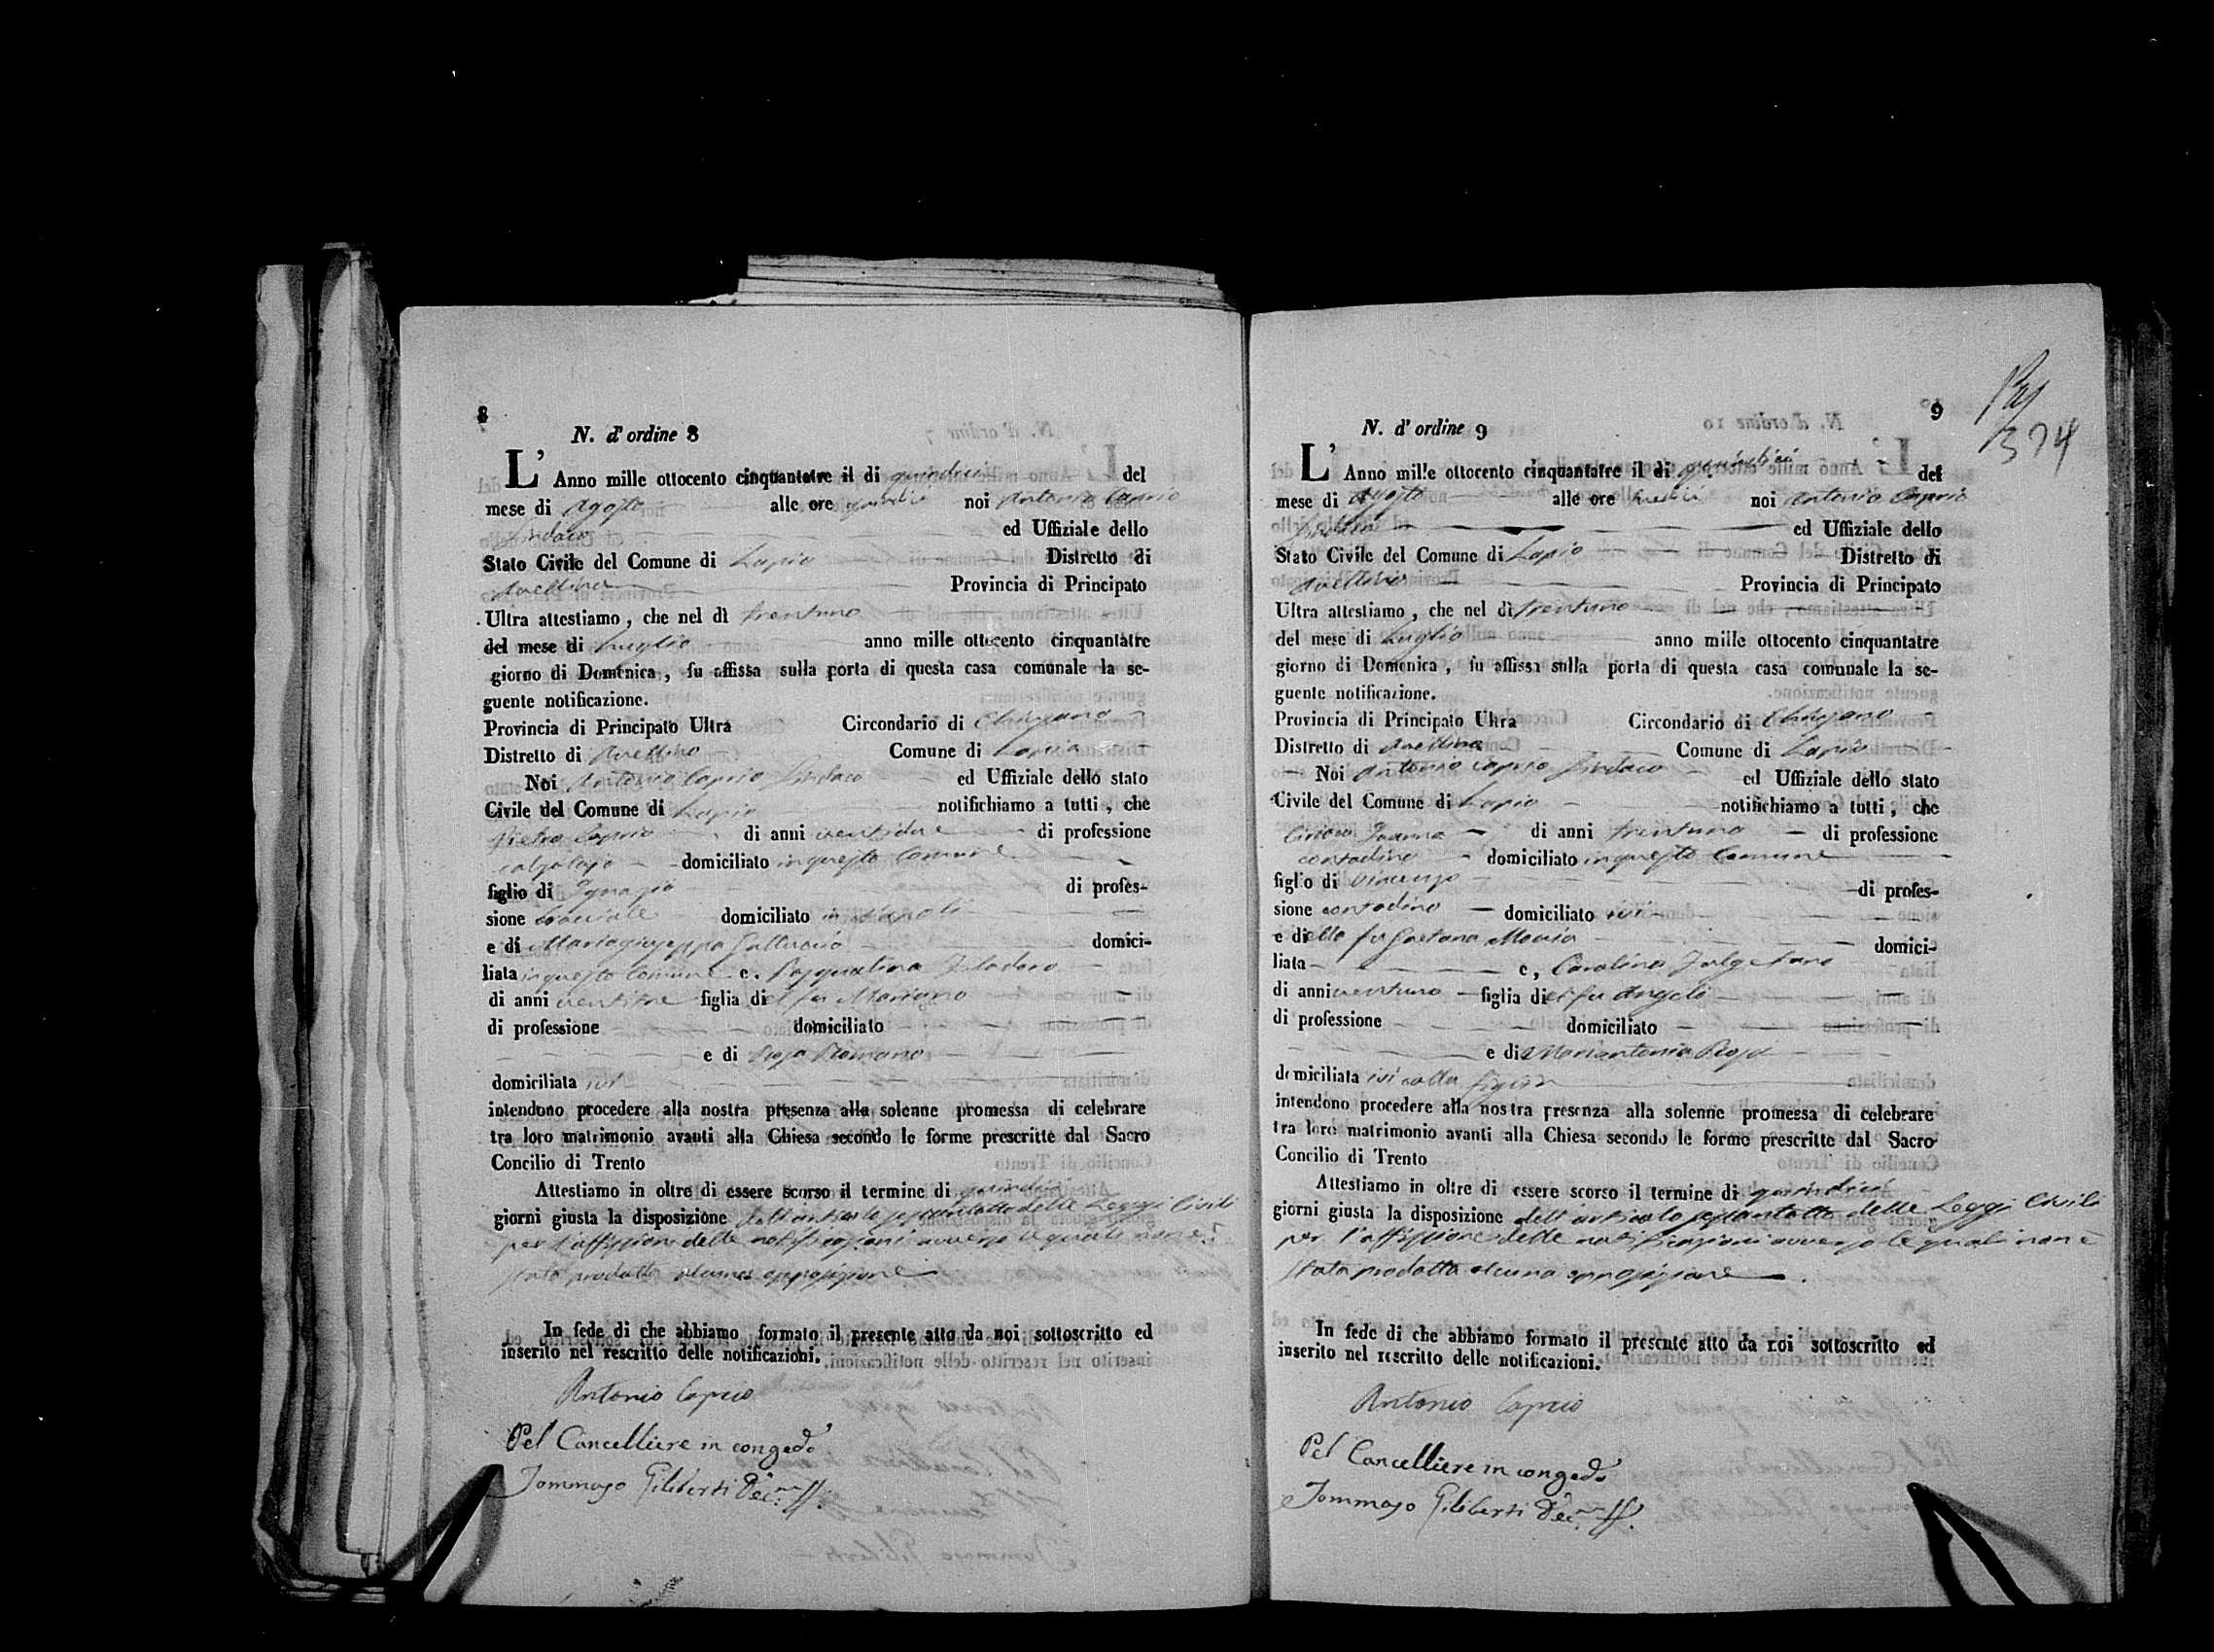 8
N. d'ordine 8
L' Anno mille ottocento cinquantatre il di quindici del
mese di Agosto alle ore noi Antonio Caprio
Sindaco ed Uffiziale dello
Stato Civile del Comune di Lapio Distretto di
Avellino Provincia di Principato
Ultra attestiamo, che nel dì trentuno
del mese di Luglio anno mille ottocento cinquantatre
giorno di Domenica, fu affissa sulla porta di questa casa comunale la se-
guente notificazione.
Provincia di Principato Ultra Circondario di Chiusano
Distretto di Avellino Comune di Lapio
Noi Antonio Caprio Sindaco ed Uffiziale dello stato
Civile del Comune di Lapio notifichiamo a tutti, che
Pietro Caprio di anni ventidue di professione
calzolajo domiciliato in questo Comune
figlio di Ignazio di profes-
sione domiciliato in Napoli
e di Mariagiuseppa domici-
liata in questo Comune e. Pasqualina
di anni figlia di el fu Mariano
di professione domiciliato
e di Rosa Romano
domiciliata ivi
intendono procedere alla nostra presenza alla solenne promessa di celebrare
tra loro matrimonio avanti alla Chiesa secondo le forme prescritte dal Sacro
Concilio di Trento
Attestiamo in oltre di essere scorso il termine di quindici
giorni giusta la disposizione dell'articolo sessantotto delle Leggi Civili
per l'affissione delle notificazioni avverso le quali non è
stata prodotta alcuna opposizione
In fede di che abbiamo formato il presente atto da noi sottoscritto ed
inserito nel rescritto delle notificazioni.
Antonio Caprio
Pel Cancelliere in congedo
Tommaso Giliberti
9
Pag
374
N. d'ordine 9
L' Anno mille ottocento cinquantatre il di quindici del
mese di Agosto alle ore noi Antonio Caprio
Sindaco ed Uffiziale dello
Stato Civile del Comune di Lapio Distretto di
Avellino Provincia di Principato
Ultra attestiamo, che nel dì trentuno
del mese di Luglio anno mille ottocento cinquantatre
giorno di Domenica, fu affissa sulla porta di questa casa comunale la se-
guente notificazione.
Provincia di Principato Ultra Circondario di Chiusano
Distretto di Avellino Comune di Lapio
Noi Antonio Caprio Sindaco ed Uffiziale dello stato
Civile del Comune di Lapio notifichiamo a tutti, che
di anni trentuno di professione
contadino domiciliato in questo Comune
figlio di Vincenzo di profes-
sione contadino domiciliato ivi
e di ella fu Gaetana domici-
liata e, Carolina
di anni ventuno figlia di el fu Angelo
di professione domiciliato
e di Mariantonia Rosa
domiciliata ivi colla figlia
intendono procedere alla nostra presenza alla solenne promessa di celebrare
tra loro matrimonio avanti alla Chiesa secondo le forme prescritte dal Sacro
Concilio di Trento
Attestiamo in oltre di essere scorso il termine di quindici
giorni giusta la disposizione dell'articolo sessantotto delle Leggi Civili
per l'affissione delle notificazioni avverso le quali non è
stata prodotta alcuna opposizione.
In fede di che abbiamo formato il presente atto da noi sottoscritto ed
inserito nel rescritto delle notificazioni.
Antonio Caprio
Pel Cancelliere in congedo
Tommaso Giliberti